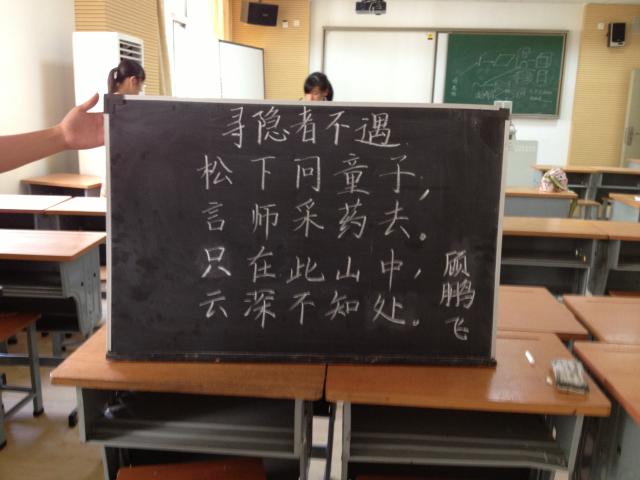 寻隐者不遇
松下问童子，
言师采药去。
只在此山中，
云深不知处。
顾鹏飞